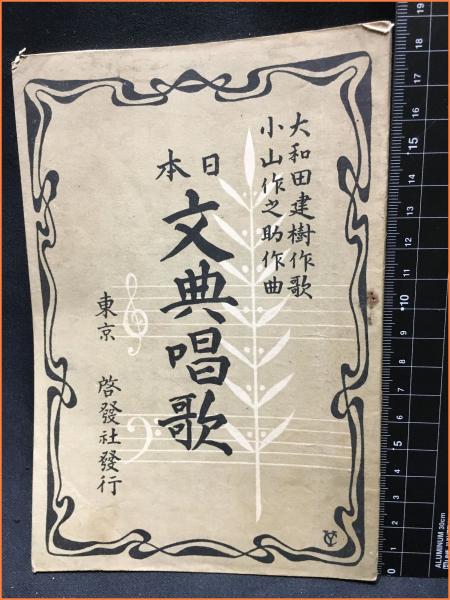 大和田建樹作歌
小山作之助作曲
日本
文典唱歌
東京 啓發社發行
19
18
17
16
15
14
13
12
11
10
9
8
7
6
5
4
3
2
1
0
ALUMINUM 30cm